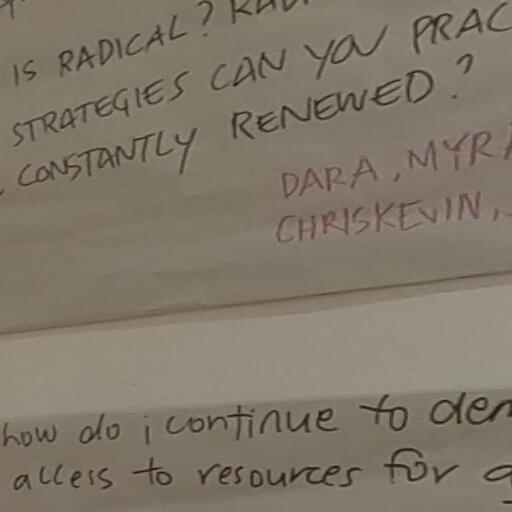 IS RADICAL?
STRATEGIES CAN YOU PRAC
CONSTANTLY RENEWED?
DARA, MYR
CHRISKEVIN,
how do i continue to den
access to resources for